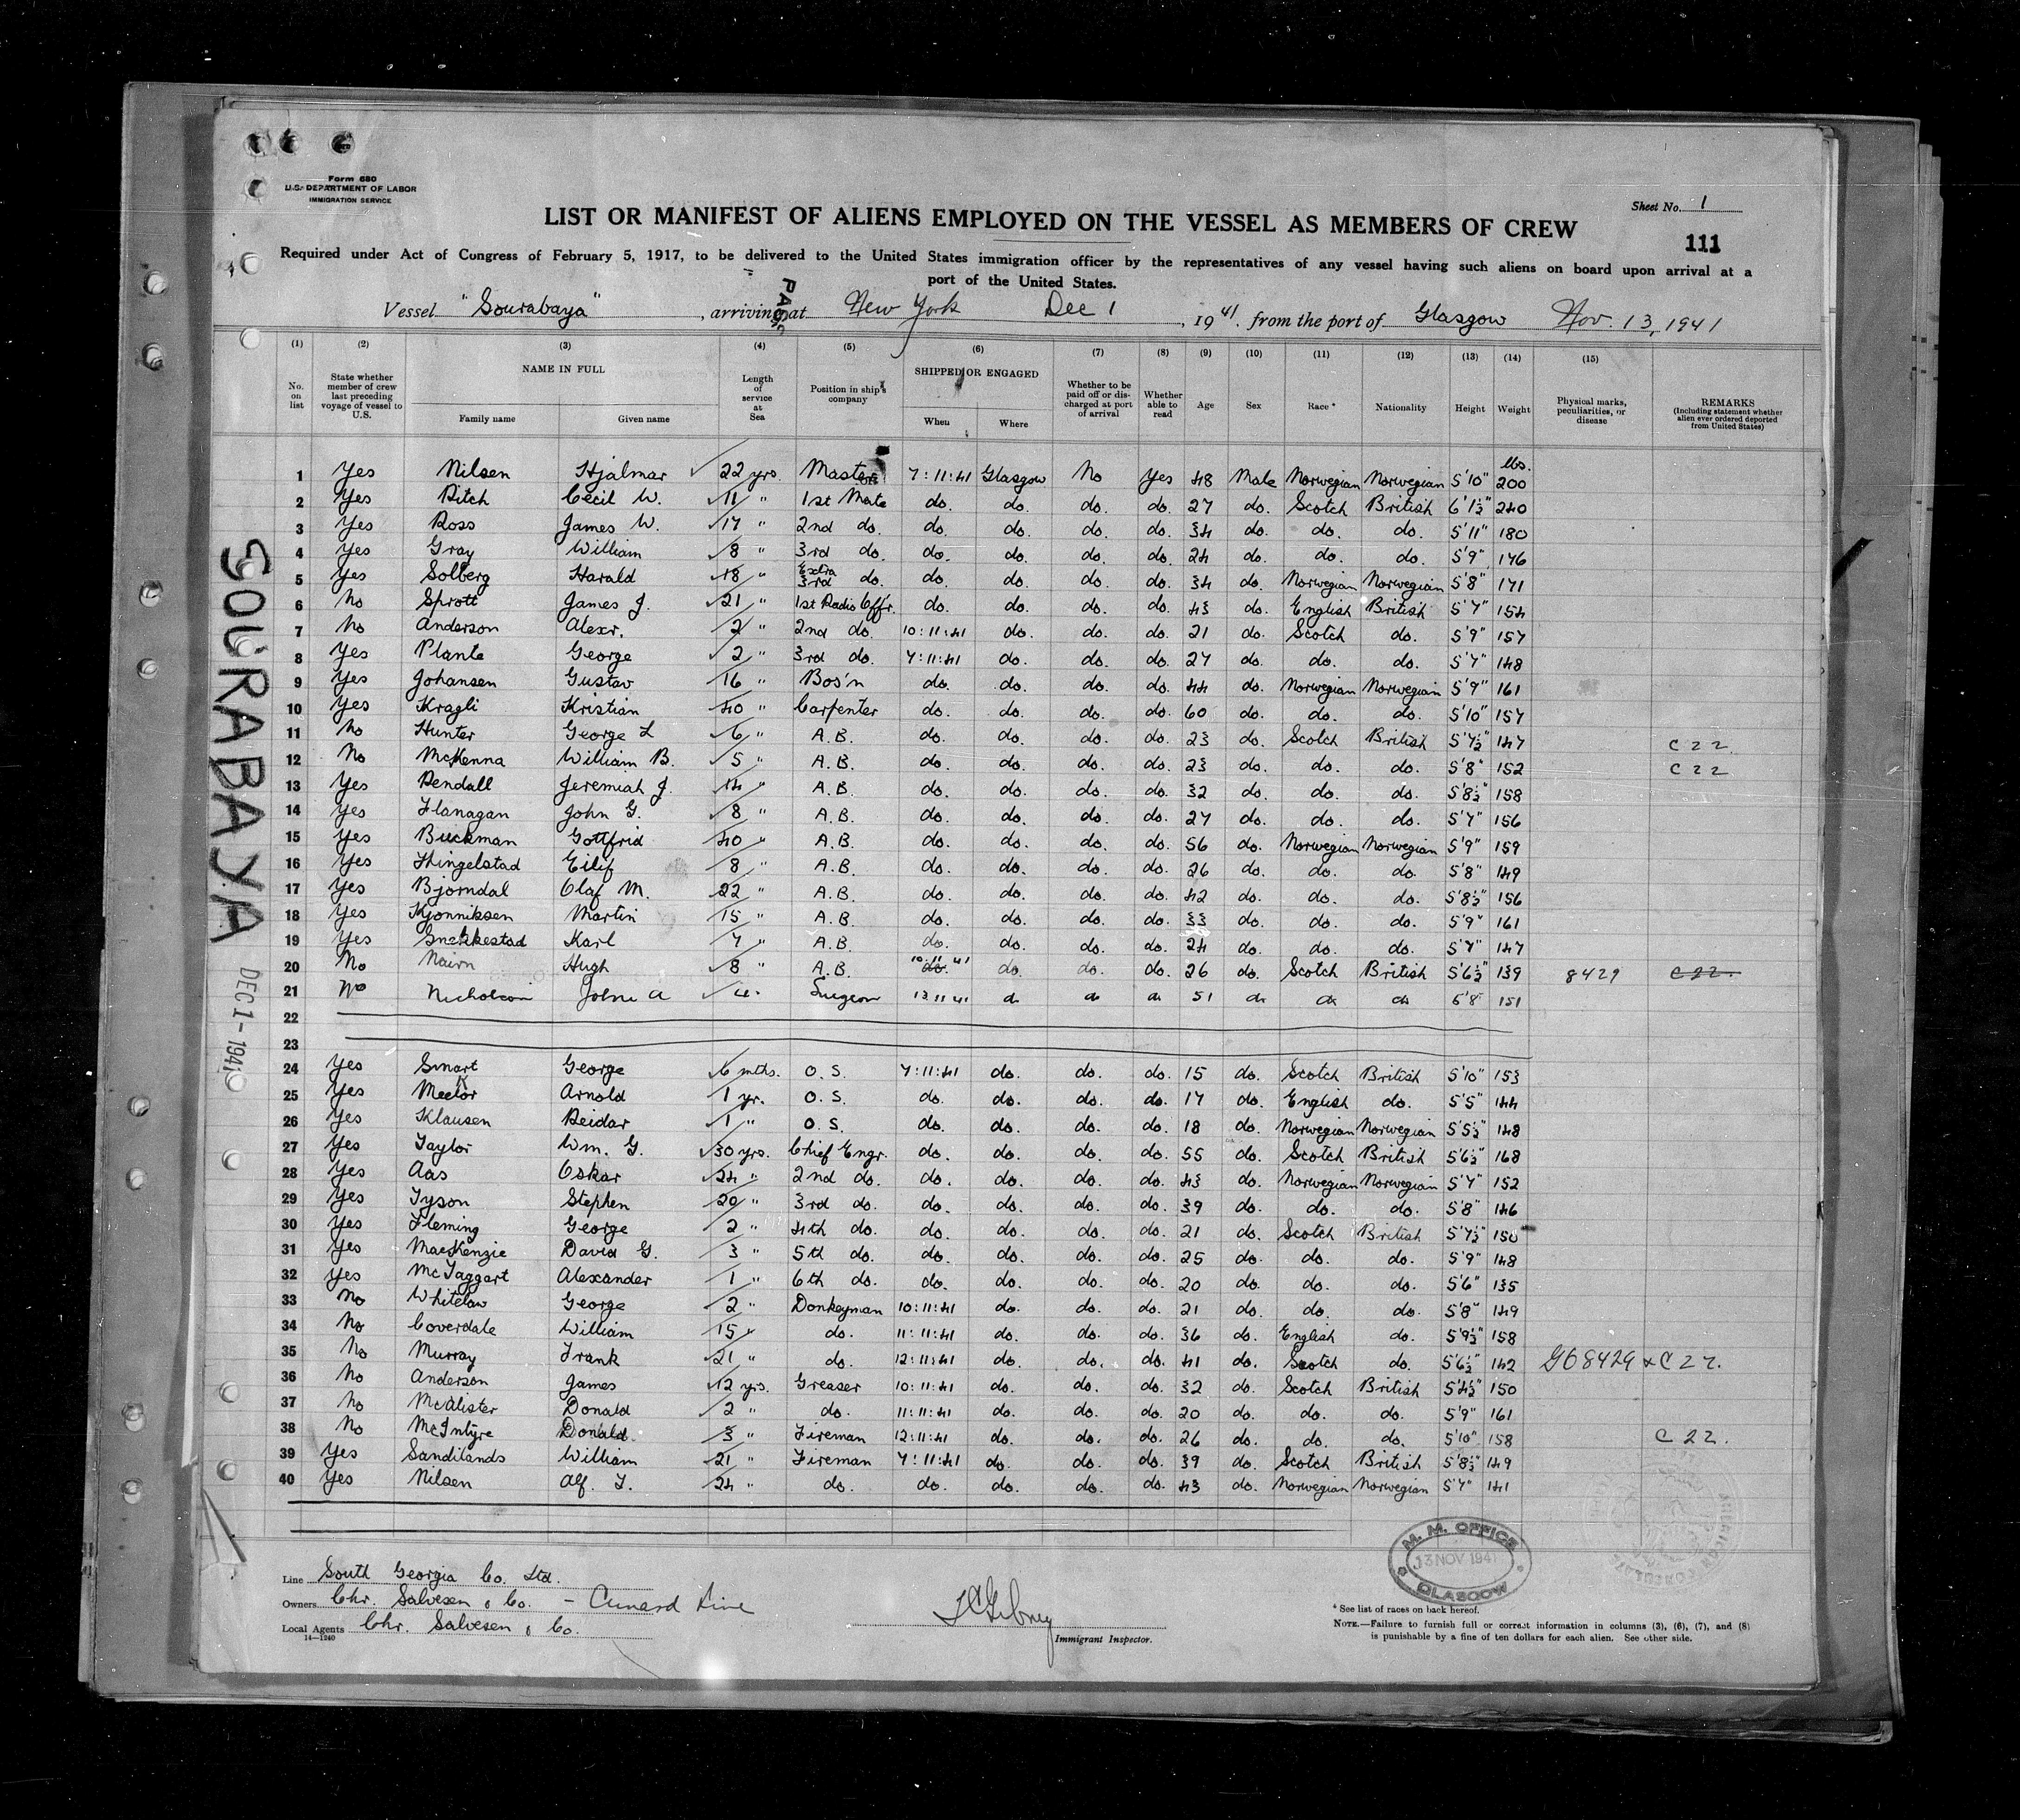 Form 680
U.S. DEPARTMENT OF LABOR
IMMIGRATION SERVICE
Sheet No. 1
LIST OR MANIFEST OF ALIENS EMPLOYED ON THE VESSEL AS MEMBERS OF CREW
111
Required under Act of Congress of February 5, 1917, to be delivered to the United States immigration officer by the representatives of any vessel having such aliens on board upon arrival at a
port of the United States.
Vessel "Sourabaya", arriving at New York Dec 1, 1941. from the port of Glasgow Nov. 13, 1941
(1) (2) (3) (4) (5) (6) (7) (8) (9) (10) (11) (12) (13) (14) (15)
No. on list State whether member of crew last preceding voyage of vessel to U.S. NAME IN FULL Family name Given name Length of service at Sea Position in ship's company SHIPPED OR ENGAGED When Where Whether to be paid off or discharged at port of arrival Whether able to read Age Sex Race* Nationality Height Weight Physical marks, peculiarities, or disease REMARKS (Including statement whether alien ever ordered deported from United States)
1 Yes Nilsen Hjalmar 22 yrs. Master 7:11:41 Glasgow No Yes 48 Male Norwegian Norwegian 5'10" lbs. 200
2 Yes Pitch Cecil W. 11 " 1st Mate do. do. do. do. 27 do. Scotch British 6'1½" 240
3 Yes Ross James W. 17 " 2nd do. do. do. do. do. 34 do. do. do. 5'11" 180
4 Yes Gray William 8 " 3rd do. do. do. do. do. 24 do. do. do. 5'9" 176
5 Yes Solberg Harald 18 " Extra 3rd do. do. do. do. do. 34 do. Norwegian Norwegian 5'8" 171
6 No Sprott James J. 21 " 1st Radio Offr. do. do. do. do. 43 do. English British 5'7" 154
7 No Anderson Alexr. 2 " 2nd do. 10:11:41 do. do. do. 21 do. Scotch do. 5'9" 157
8 Yes Plante George 2 " 3rd do. 7:11:41 do. do. do. 27 do. do. do. 5'7" 148
9 Yes Johansen Gustav 16 " Bos'n do. do. do. do. 44 do. Norwegian Norwegian 5'9" 161
10 Yes Kragli Kristian 40 " Carpenter do. do. do. do. 60 do. do. do. 5'10" 157
11 No Hunter George L 6 " A.B. do. do. do. do. 23 do. Scotch British 5'7½" 147 C 22.
12 No McKenna William B. 5 " A.B. do. do. do. do. 23 do. do. do. 5'8" 152 C 22
13 Yes Rendall Jeremiah J. 14 " A.B. do. do. do. do. 32 do. do. do. 5'8½" 158
14 Yes Flanagan John G. 8 " A.B. do. do. do. do. 27 do. do. do. 5'7" 156
15 Yes Buckman Gottfrid 40 " A.B. do. do. do. do. 56 do. Norwegian Norwegian 5'9" 159
16 Yes Hingelstad Eilif 8 " A.B. do. do. do. do. 26 do. do. do. 5'8" 149
17 Yes Bjorndal Olaf M. 22 " A.B. do. do. do. do. 42 do. do. do. 5'8½" 156
18 Yes Kjonniksen Martin 15 " A.B. do. do. do. do. 33 do. do. do. 5'9" 161
19 Yes Snekkestad Karl 7 " A.B. do. do. do. do. 24 do. do. do. 5'7" 147
20 No Nairn Hugh 8 " A.B. 10:11:41 do. do. do. do. 26 do. Scotch British 5'6½" 139 8429 C 22.
21 No Nicholson John A Surgeon 13 11 41 do do do 51 do do do 5'8" 151
22
23
24 Yes Smart George 6 mths. O.S. 7:11:41 do. do. do. 15 do. Scotch British 5'10" 153
25 Yes Mector Arnold 1 yr. O.S. do. do. do. do. 17 do. English do. 5'5" 144
26 Yes Klausen Reidar 1 " O.S. do. do. do. do. 18 do. Norwegian Norwegian 5'5½" 148
27 Yes Taylor Wm. G. 30 yrs. Chief Engr. do. do. do. do. 55 do. Scotch British 5'6½" 168
28 Yes Aas Oskar 24 " 2nd do. do. do. do. do. 43 do. Norwegian Norwegian 5'7" 152
29 Yes Tyson Stephen 20 " 3rd do. do. do. do. do. 39 do. do. do. 5'8" 146
30 Yes Fleming George 2 " 4th do. do. do. do. do. 21 do. Scotch British 5'7½" 150
31 Yes MacKenzie David G. 3 " 5th do. do. do. do. do. 25 do. do. do. 5'9" 148
32 Yes McTaggart Alexander 1 " 6th do. do. do. do. do. 20 do. do. do. 5'6" 135
33 No Whitelaw George 2 " Donkeyman 10:11:41 do. do. do. 21 do. do. do. 5'8" 149
34 No Coverdale William 15 " do. 11:11:41 do. do. do. 36 do. English do. 5'9½" 158
35 No Murray Frank 21 " do. 12:11:41 do. do. do. 41 do. Scotch do. 5'6½" 142 G68429 & C 27.
36 No Anderson James 12 yrs. Greaser 10:11:41 do. do. do. 32 do. Scotch British 5'4½" 150
37 No McAlister Donald 2 " do. 11:11:41 do. do. do. 20 do. do. do. 5'9" 161
38 No McIntyre Donald 3 " Fireman 12:11:41 do. do. do. 26 do. do. do. 5'10" 158 C 22.
39 Yes Sandilands William 21 " Fireman 7:11:41 do. do. do. 39 do. Scotch British 5'8½" 149
40 Yes Nilsen Alf. T. 24 " do. do. do. do. do. 43 do. Norwegian Norwegian 5'7" 141
SOURABAYA
DEC 1 - 1941
M. M. OFFICE
13 NOV 1941
GLASGOW
Line South Georgia Co. Ltd.
Owners Chr. Salvesen & Co. - Cunard Line
Local Agents Chr. Salvesen & Co.
14—1240
Immigrant Inspector.
* See list of races on back hereof.
NOTE.—Failure to furnish full or correct information in columns (3), (6), (7), and (8)
is punishable by a fine of ten dollars for each alien. See other side.